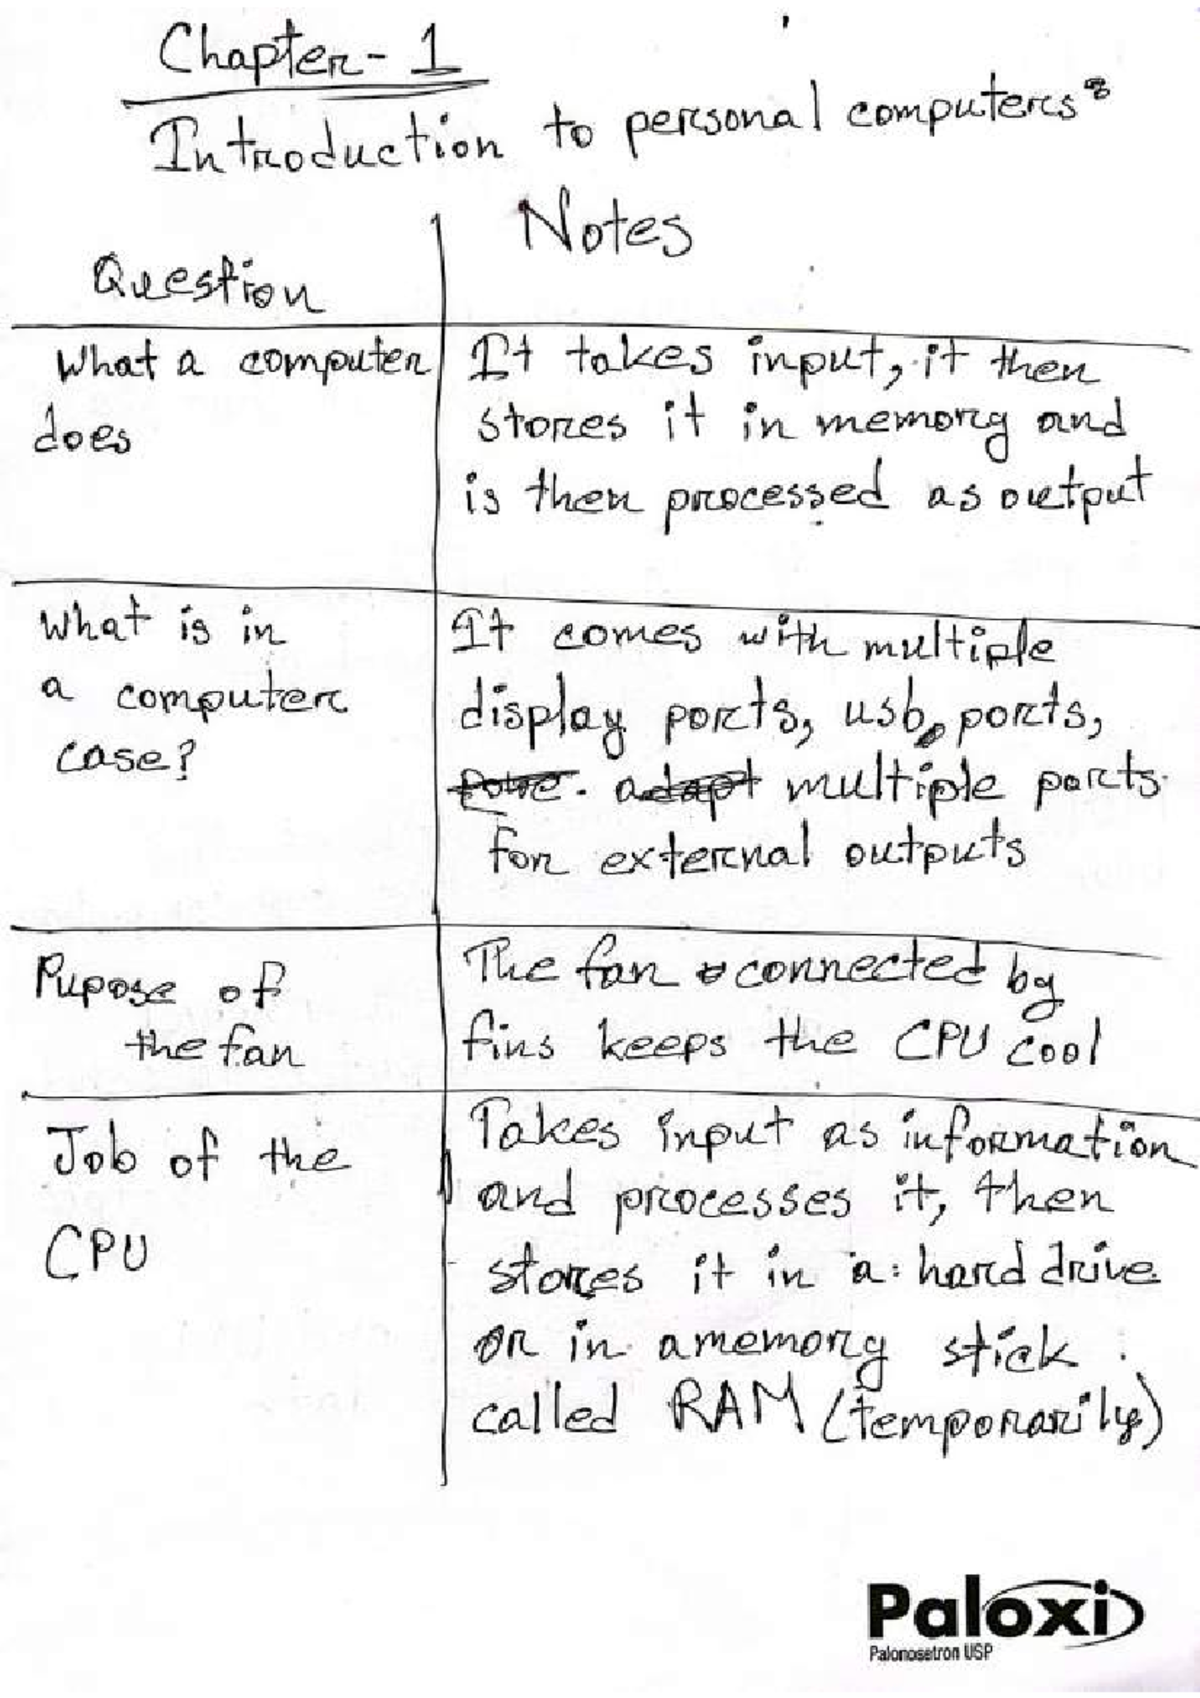 Chapter- 1
Introduction to personal computers:
Question
Notes
What a computer
does
It takes input, it then
stores it in memory and
is then processed as output
What is in
a computer
case?
It comes with multiple
display ports, usb ports,
multiple ports
for external outputs
Pupose of
the fan
The fan connected by
fins keeps the CPU cool
Job of the
CPU
Takes input as information
and processes it, then
stores it in a hard drive
or in a memory stick
called RAM (temporarily)
Paloxi
Palonosetron USP